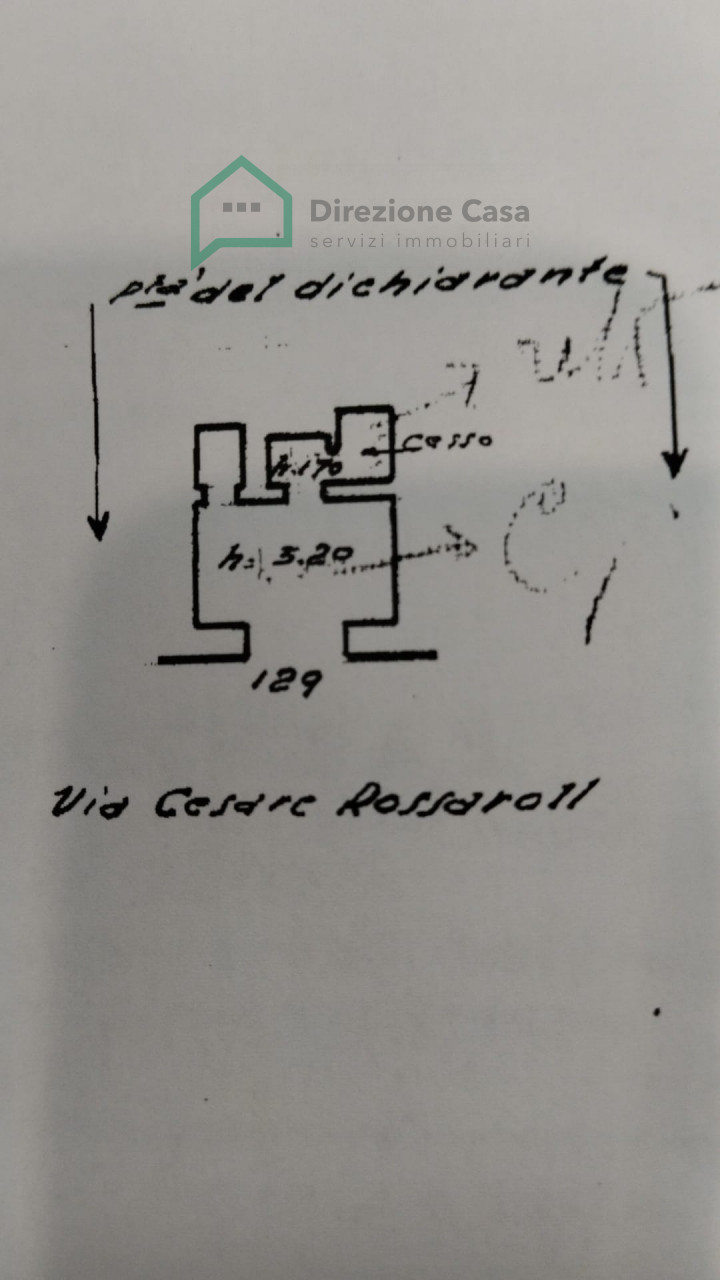 Direzione Casa
servizi immobiliari
p.tà del dichiarante
cesso
h.170
h= 3.20
129
Via Cesare Rossaroll